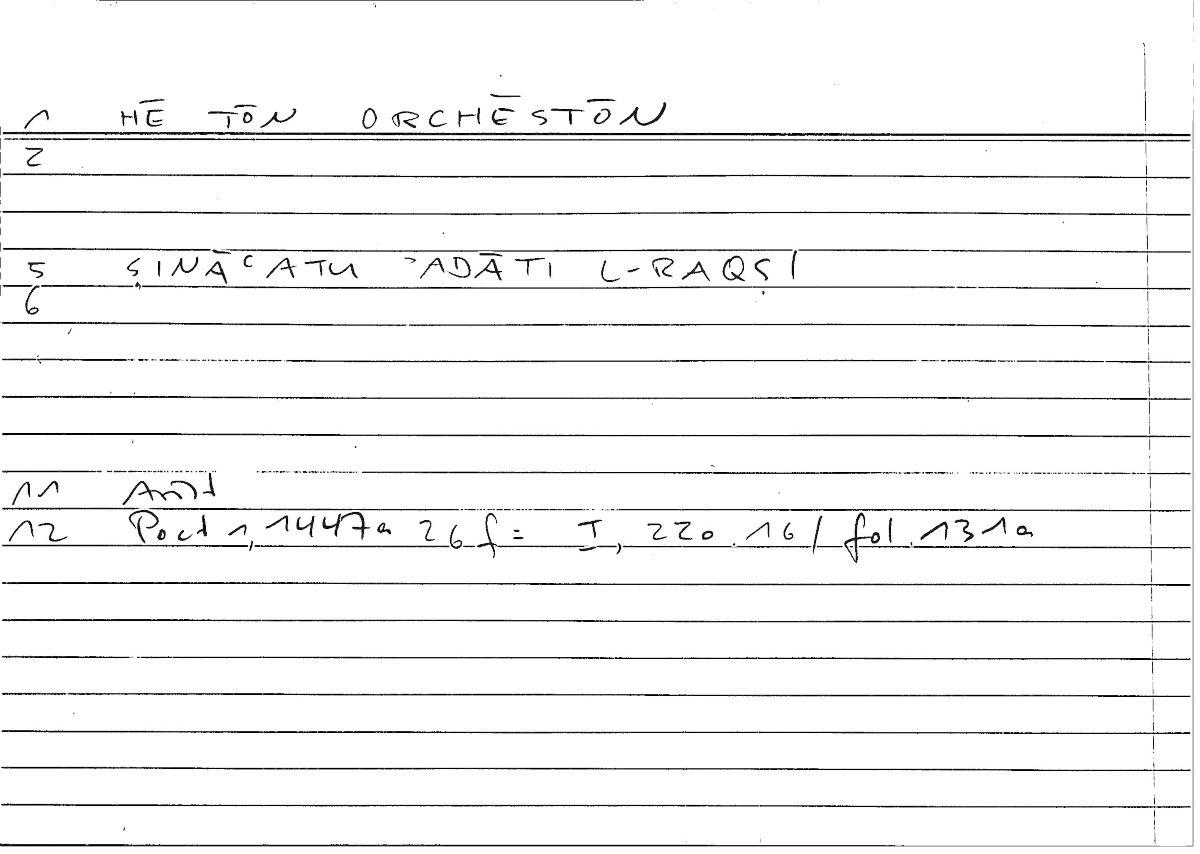 1 HĒ TŌN ORCHĒSTŌN
2
5 ṢINĀʿATU ʾADĀTI L-RAQṢI
6
11 Arist
12 Poet 1, 1447a 26 f = I, 220.16 / fol. 131a